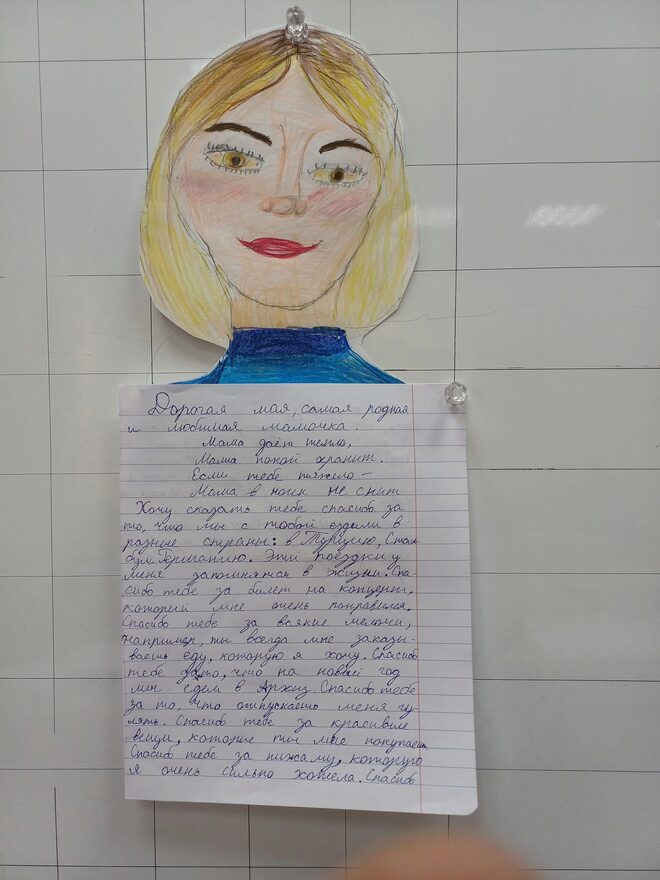 Дорогая моя, самая родная
и любимая мамочка.
Мама даёт тепло,
Мама покой хранит.
Если тебе тяжело –
Мама в ночи не спит
Хочу сказать тебе спасибо за
то, что мы с тобой ездили в
разные страны: в Турцию, Стам
бул Германию. Эти поездки у
меня запомнятся в жизни. Спа
сибо тебе за билет на концерт,
который мне очень понравился.
Спасибо тебе за всякие мелочи,
например, ты всегда мне заказы-
ваешь еду, которую я хочу. Спасибо
тебе за то, что на новый год
мы едем в Архыз. Спасибо тебе
за то, что отпускаешь меня гу
лять. Спасибо тебе за красивые
вещи, которые ты мне покупаешь
Спасибо тебе за пижаму, которую
я очень сильно хотела. Спасибо